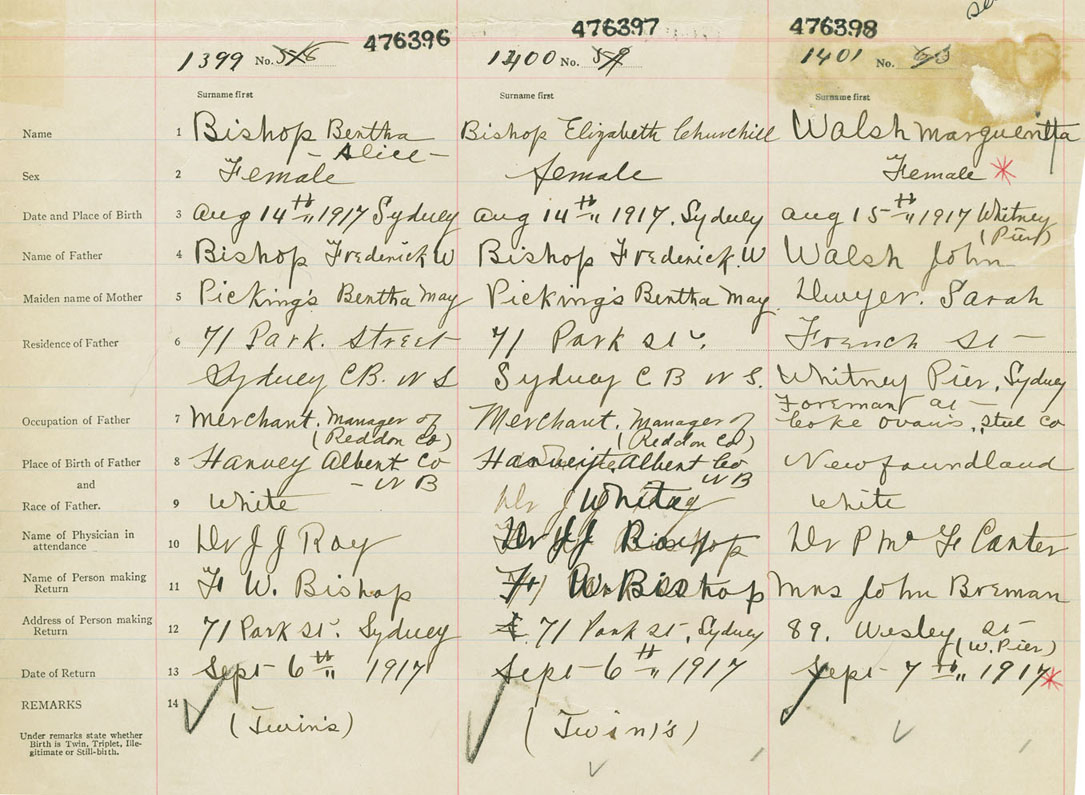 476396 476397 476398
1399 No. 1400 No. 1401 No.
Surname first Surname first Surname first
Name 1 Bishop Bertha Bishop Elizabeth Churchill Walsh Margueritta
- Alice -
Sex 2 Female female Female *
Date and Place of Birth 3 Aug 14th 1917 Sydney Aug 14th 1917. Sydney Aug 15th 1917 Whitney
(Pier)
Name of Father 4 Bishop Frederick W Bishop Frederick. W Walsh John
Maiden name of Mother 5 Picking's Bertha May Picking's Bertha May Dwyer. Sarah
Residence of Father 6 71 Park. Street 71 Park St. French St -
Sydney C.B. N S Sydney C B N S. Whitney Pier, Sydney
Foreman at -
Occupation of Father 7 Merchant, Manager of Merchant, Manager of Coke Ovans, steel Co
(Reddon Co) (Reddon Co)
Place of Birth of Father 8 Harvey Albert Co Albert Co Newfoundland
and - N B N B
Race of Father. 9 White White White
Name of Physician in
attendance 10 Dr J J Roy Dr J J Roy Dr P Mc F Carter
Name of Person making
Return 11 F W. Bishop W. Bishop Mrs John Breman
Address of Person making
Return 12 71 Park St. Sydney 71 Park St, Sydney 89. Wesley St -
(W. Pier)
Date of Return 13 Sept 6th 1917 Sept 6th 1917 Sept 7th 1917 *
REMARKS 14
(Twin's) (Twin's)
Under remarks state whether
Birth is Twin, Triplet, Ille-
gitimate or Still-birth.